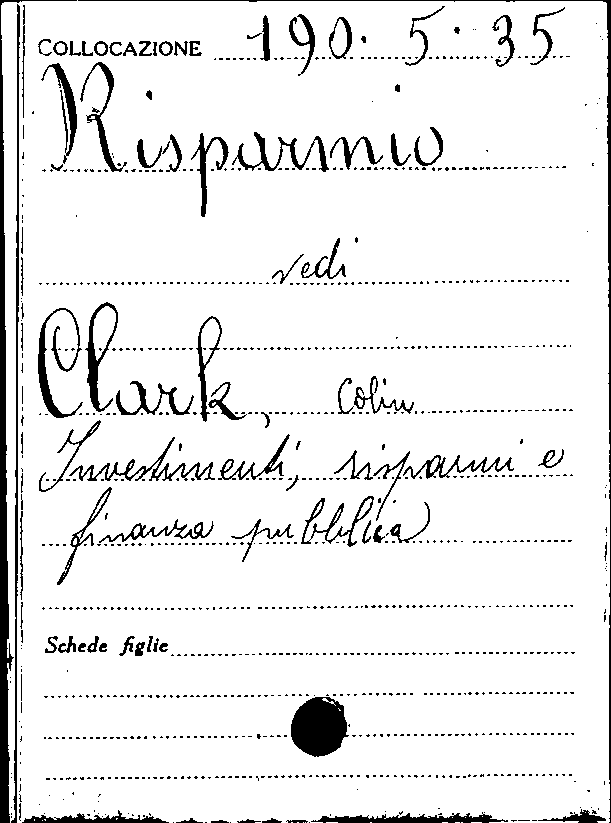 COLLOCAZIONE 190. 5. 35
Risparmio
vedi
Clark, Colin
Investimenti, risparmi e
finanza pubblica
Schede figlie